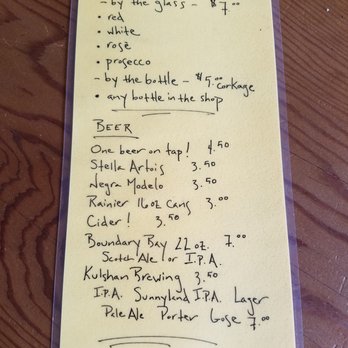 - by the glass - $7.00
• red
• white
• rosé
• prosecco
- by the bottle - $5.00 corkage
• any bottle in the shop
BEER
One beer on tap! 4.50
Stella Artois 3.50
Negra Modelo 3.50
Rainier 16oz cans 3.00
Cider! 3.50
Boundary Bay 22oz. 7.00
Scotch Ale or I.P.A.
Kulshan Brewing 3.50
I.P.A. Sunnyland I.P.A. Lager
Pale Ale Porter Gose 7.00